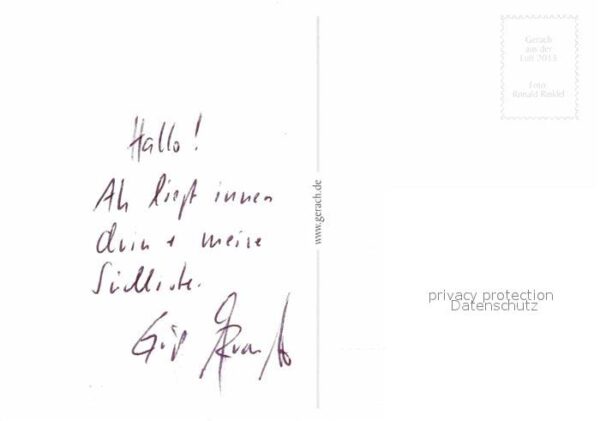 Hallo!
Ak liegt innen
drin + meine
Gruß
www.gerach.de
Gerach
aus der
Luft 2013
Foto:
Ronald Rinklef
privacy protection
Datenschutz